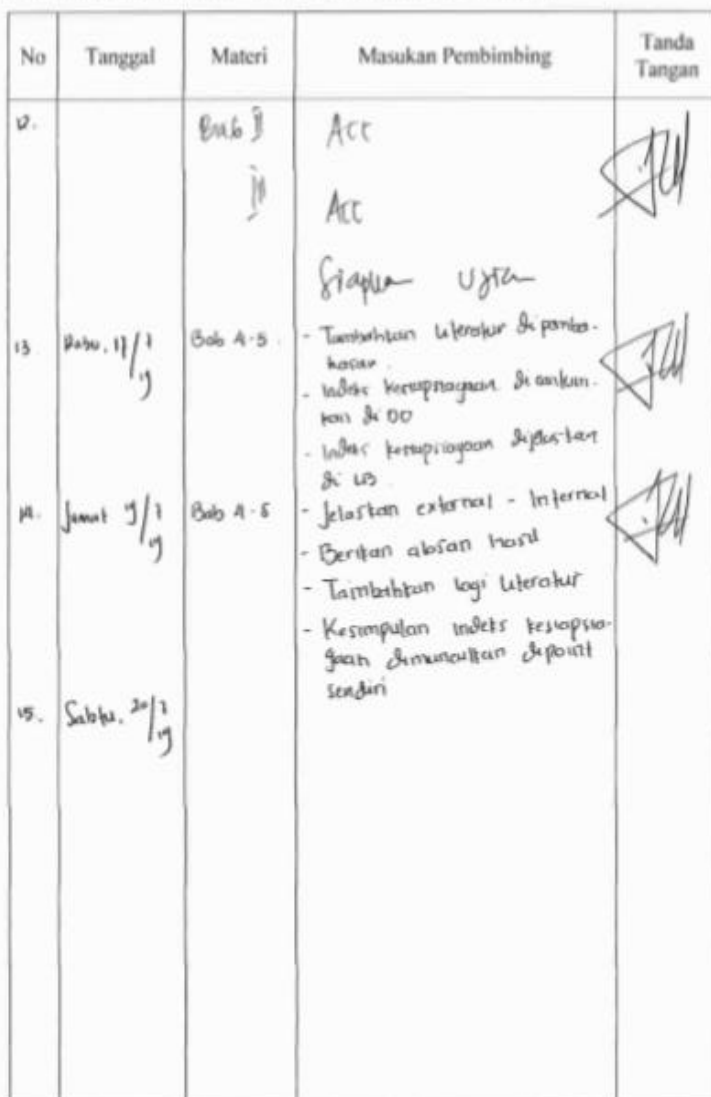 No Tanggal Materi Masukan Pembimbing Tanda Tangan
12. Bab II Acc
III Acc
Siapkan Ujian
13 Rabu, 17/7 19 Bab 4-5. - Tambahkan literatur di pemba-
hasan.
- Indeks kesiapsiagaan di
di DO
- Indeks kesiapsiagaan dijelaskan
di
14. Jumat 19/7 19 Bab 4-5 - Jelaskan external - Internal
- Berikan alasan hasil
- Tambahkan lagi literatur
- Kesimpulan indeks kesiapsia-
gaan dimunculkan dipoint
sendiri
15. Sabtu, 20/7 19